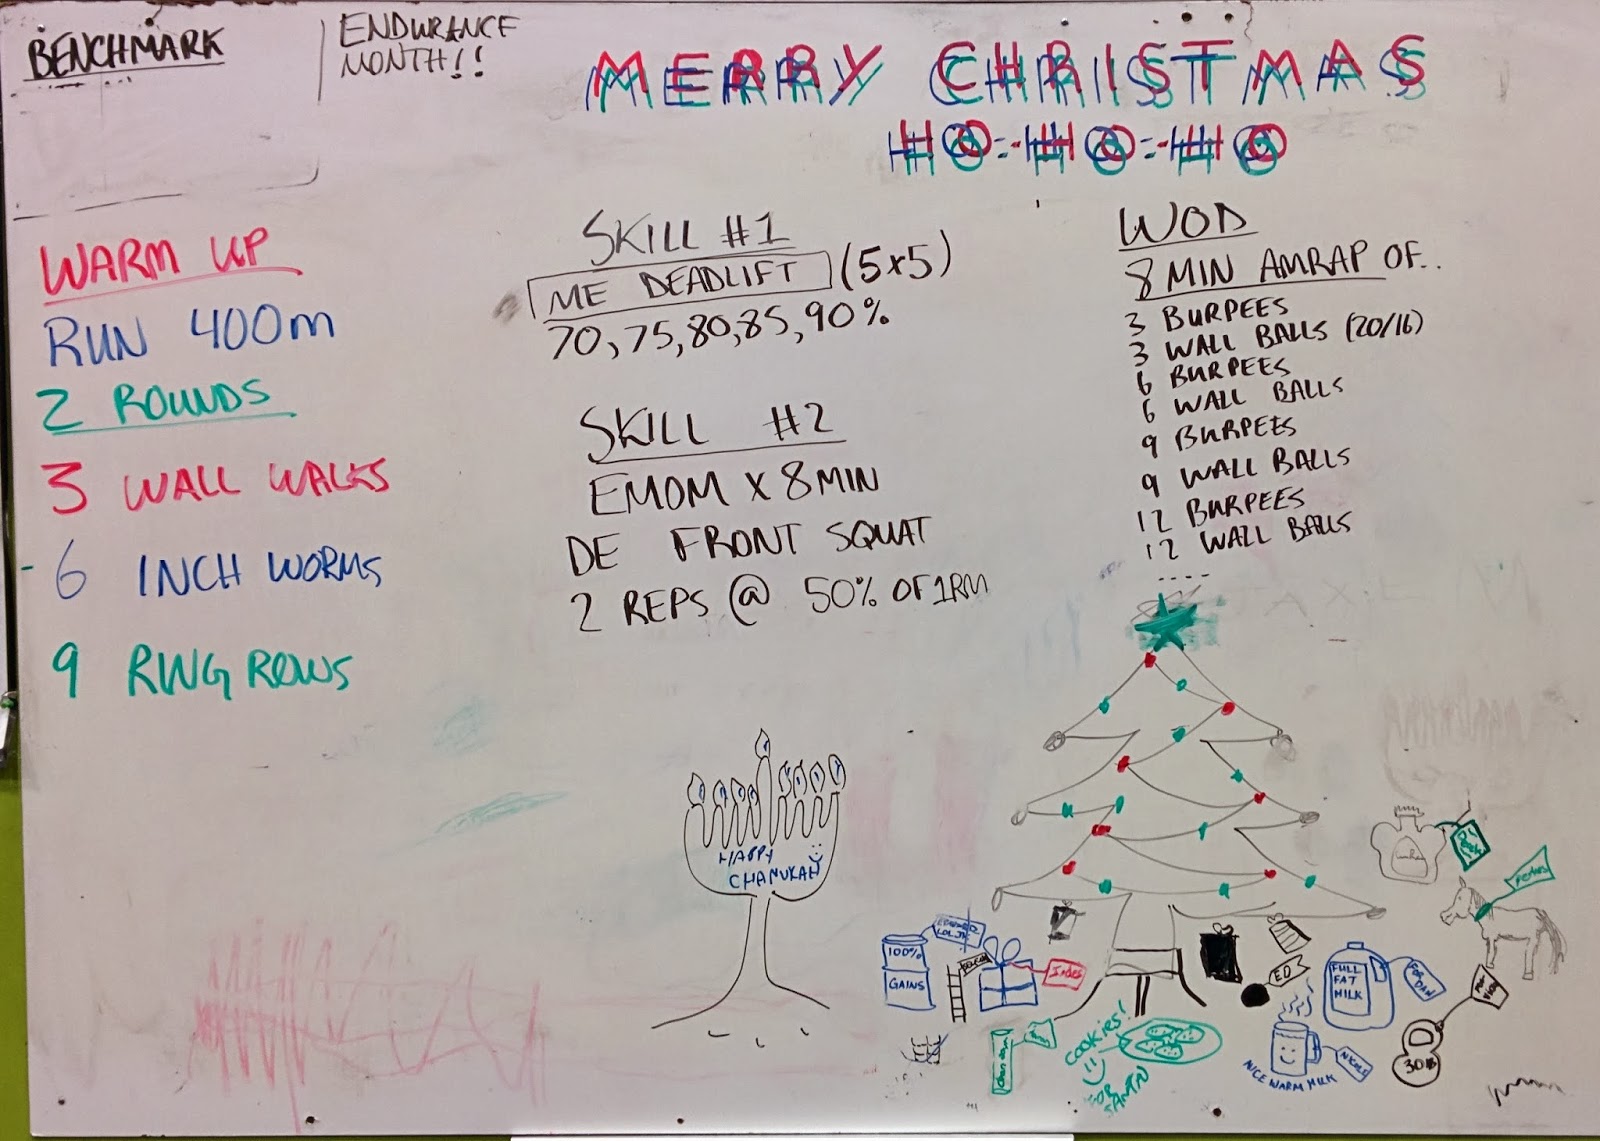 BENCHMARK
ENDURANCE
MONTH!!
MERRY CHRISTMAS
HO-HO-HO
WARM UP
RUN 400m
2 ROUNDS
3 WALL WALKS
6 INCH WORMS
9 RING ROWS
SKILL #1
ME DEADLIFT (5x5)
70, 75, 80, 85, 90%
SKILL #2
EMOM x 8 MIN
DE FRONT SQUAT
2 REPS @ 50% OF 1RM
WOD
8 MIN AMRAP OF..
3 BURPEES
3 WALL BALLS (20/16)
6 BURPEES
6 WALL BALLS
9 BURPEES
9 WALL BALLS
12 BURPEES
12 WALL BALLS
....
HAPPY
CHANUKAH
100%
GAINS
ED
FULL
FAT
MILK
FOR
DAN
COOKIES!
FOR
SANTA
NICE WARM MILK
NICOLE
30lb